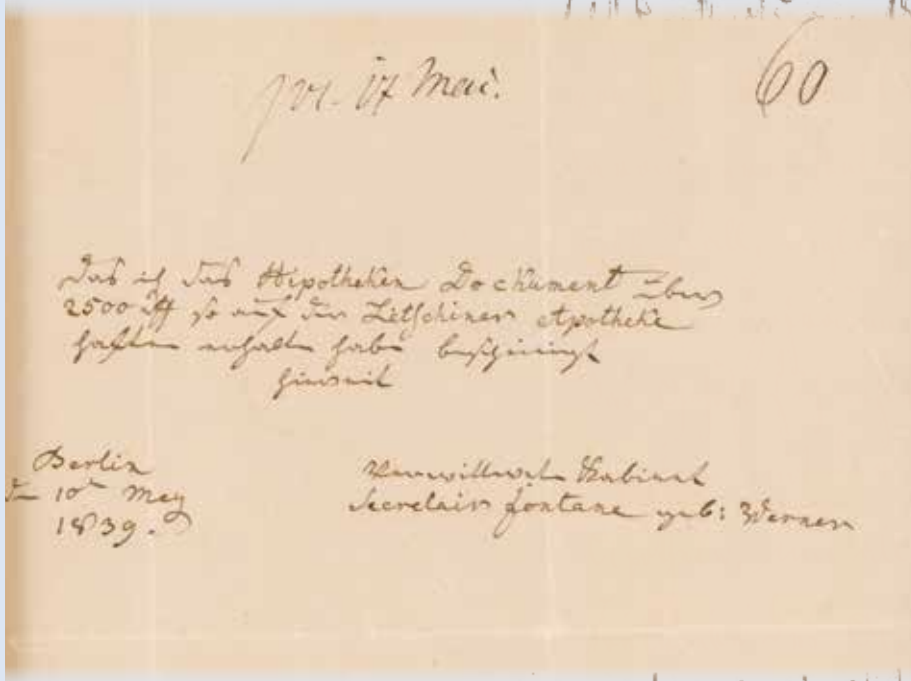 pr. 17 Mai.
60
Das ich das Hipotheken Dockument über
2500 rt so auf der Letschiner Apotheke
haften erhalten habe bescheinigt
hiermit
Berlin
d 10t Mey
1839.
Verwittwete Kabinet
Secretair Fontane geb: Werner